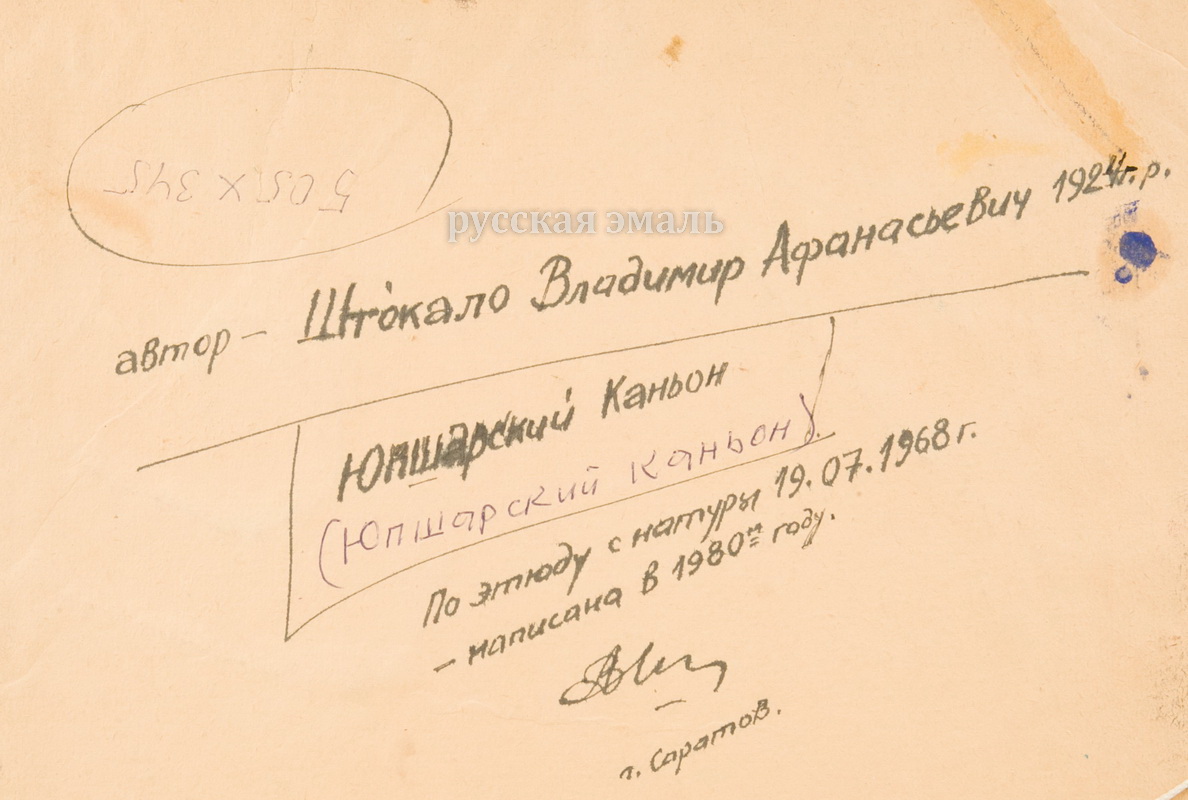 505 х 345
русская эмаль
автор – Штокало Владимир Афанасьевич 1924г.р.
Юпшарский Каньон
(Юпшарский каньон)
По этюду с натуры 19.07.1968г.
– написана в 1980м году.
г. Саратов.